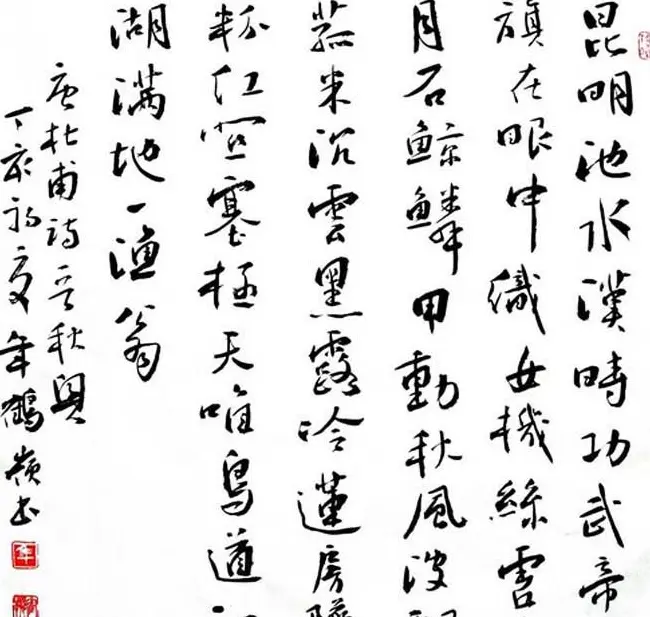 昆明池水漢時功武帝
旗在眼中織女機絲虛
月石鯨鱗甲動秋風波
菰米沉雲黑露冷蓮房
粉紅關塞極天唯鳥道
湖滿地一漁翁
唐杜甫詩秋興
丁亥初夏年鶴嶺書